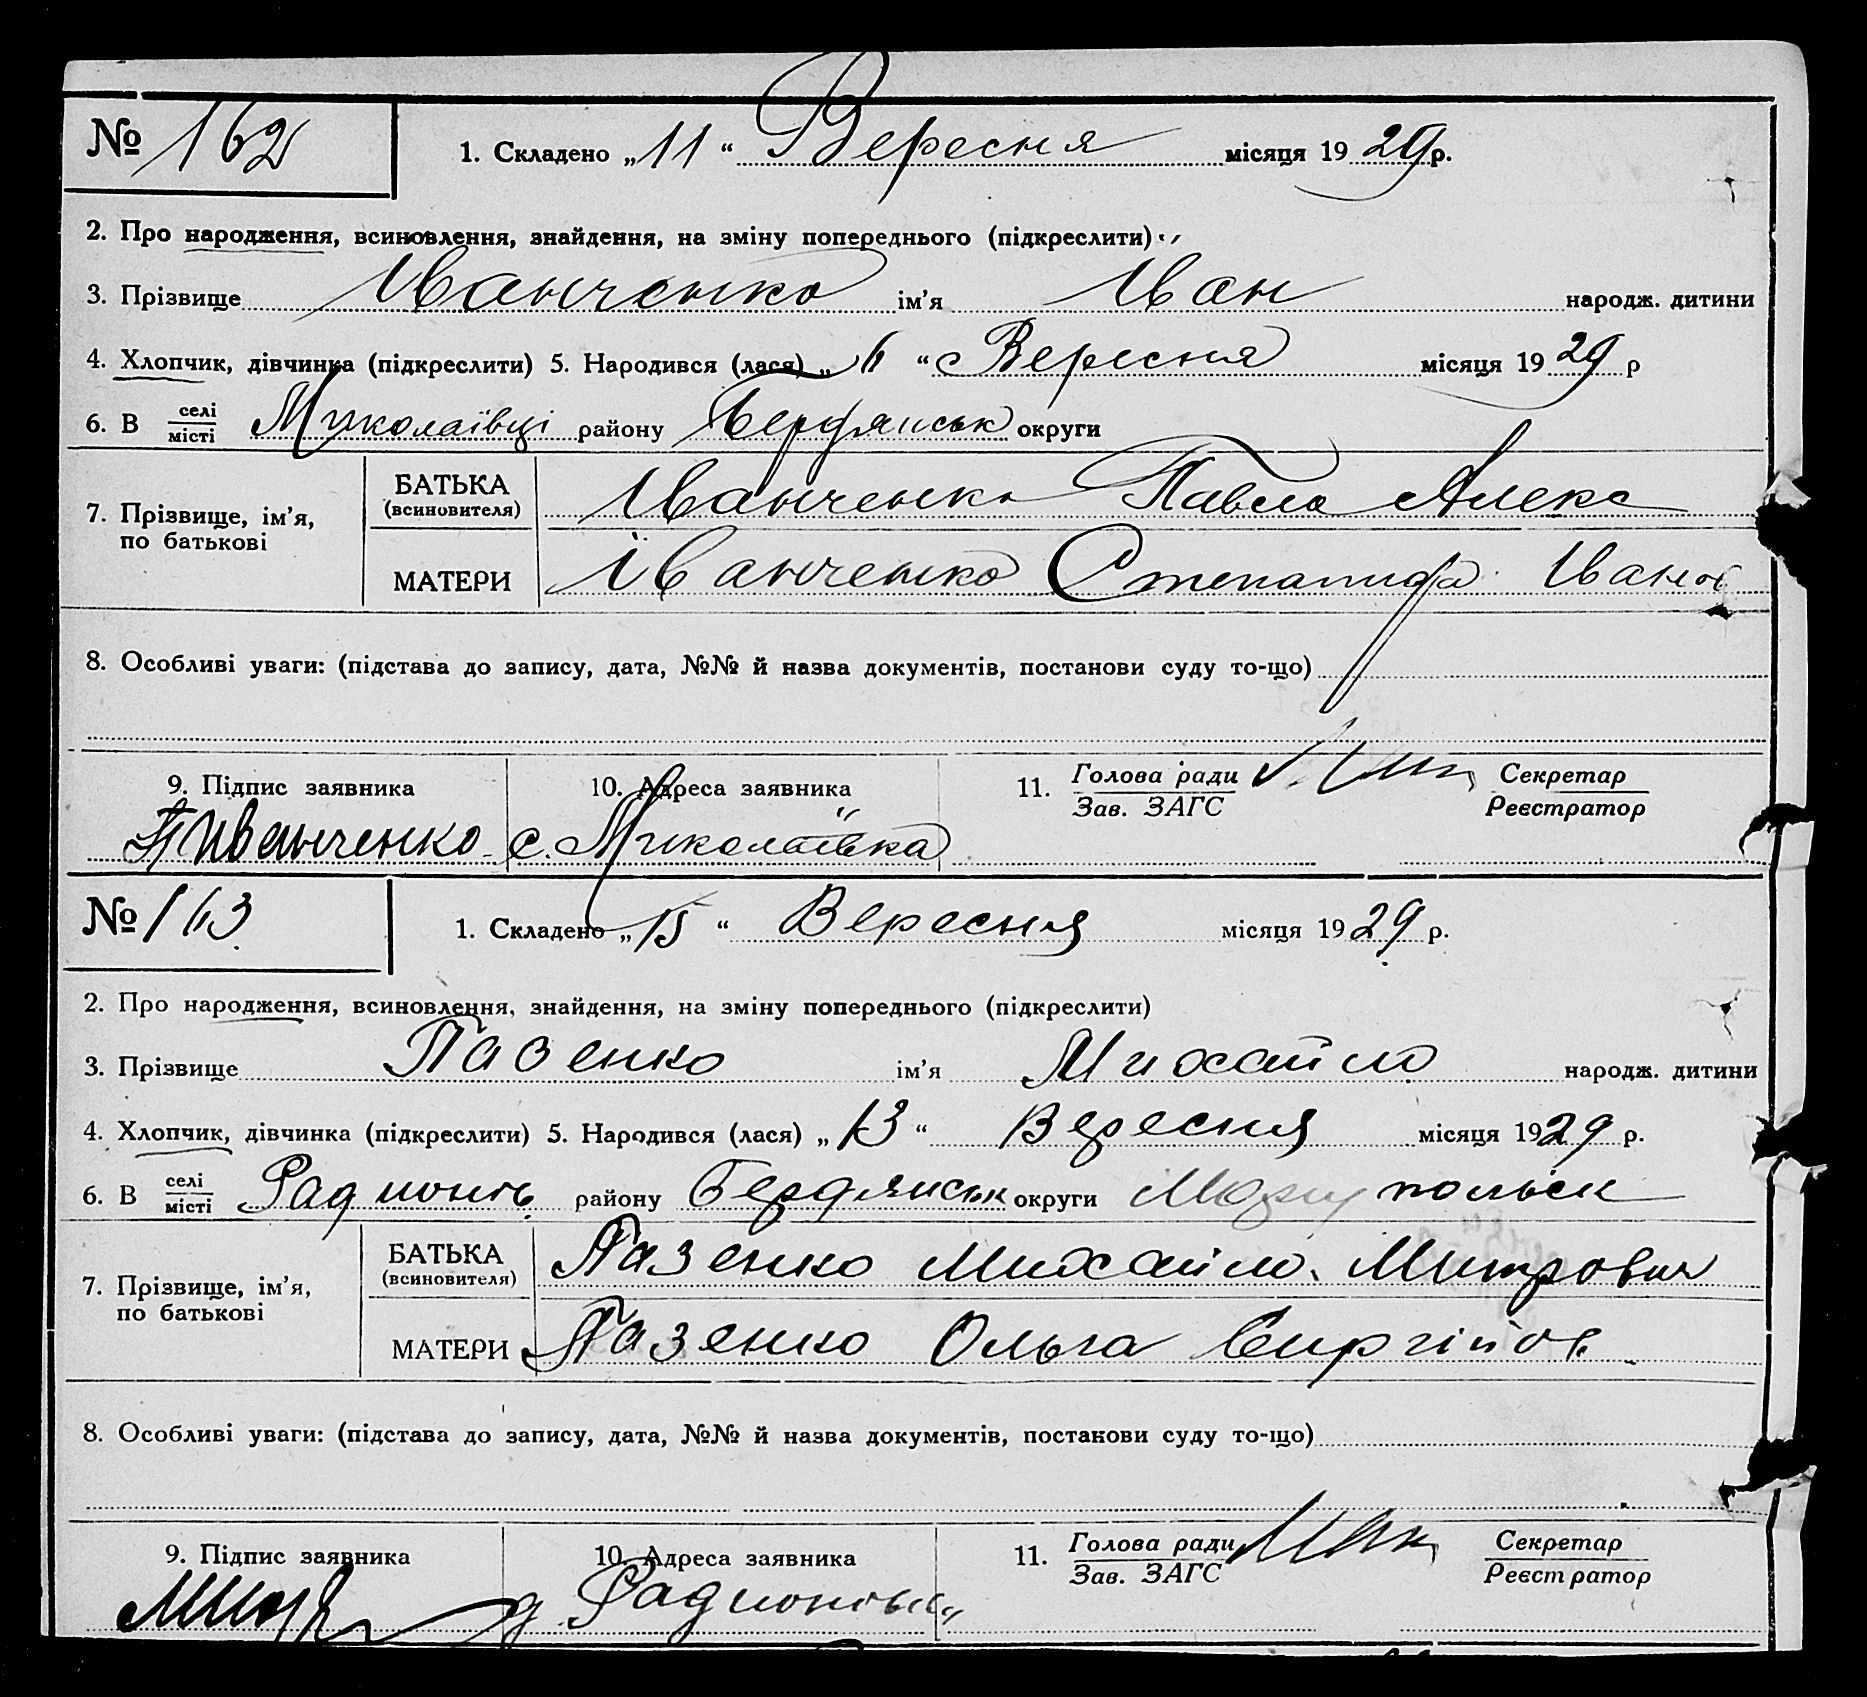 № 162 1. Складено „11“ Вересня місяця 1929 р.
2. Про народження, всиновлення, знайдення, на зміну попереднього (підкреслити)
3. Прізвище Іванченко ім'я Іван народж. дитини
4. Хлопчик, дівчинка (підкреслити) 5. Народився (лася) „6“ Вересня місяця 1929 р
6. В селі/місті Миколаївці району Бердянськ округи
7. Прізвище, ім'я, по батькові БАТЬКА (всиновителя) Іванченко Павло Алекс
МАТЕРИ Іванченко Степанида Іванов
8. Особливі уваги: (підстава до запису, дата, №№ й назва документів, постанови суду то-що)
9. Підпис заявника 10. Адреса заявника 11. Голова ради/Зав. ЗАГС Секретар/Реєстратор
П Иванченко с. Миколаївка
№ 163 1. Складено „15“ Вересня місяця 1929 р.
2. Про народження, всиновлення, знайдення, на зміну попереднього (підкреслити)
3. Прізвище Пазенко ім'я Михайло народж. дитини
4. Хлопчик, дівчинка (підкреслити) 5. Народився (лася) „13“ Вересня місяця 1929 р.
6. В селі/місті району Бердянськ округи Маріупольськ
7. Прізвище, ім'я, по батькові БАТЬКА (всиновителя) Пазенко Михайло Митрович
МАТЕРИ Пазенко Ольга Сиргійов
8. Особливі уваги: (підстава до запису, дата, №№ й назва документів, постанови суду то-що)
9. Підпис заявника 10. Адреса заявника 11. Голова ради/Зав. ЗАГС Секретар/Реєстратор